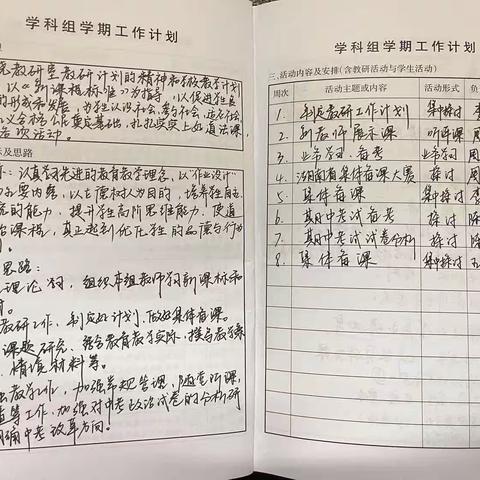 学科组学期工作计划
教研室教研计划的精神和学校教学计划
以《新课程标准》为指导，以促进学生
的形成和发展，为学生认识社会、参与社会、适应社会
公民奠定基础，扎扎实实上好道法课
各项活动。
及思路
认真学习先进的教育教学理念，以"作业设计"
内容，以立德树人为目的，培养学生自主
的能力，提升学生高阶思维能力，使道
课程，真正起到优化学生的品德与行为
思路：
理论学习，组织本组教师学习新课标和
教研工作，制定好计划，做好集体备课。
课题研究，结合教育教学实际，撰写教学案
情境材料等。
教学工作，加强常规管理，随堂听课，
等工作，加强对中考政治试卷的分析研
中考改革方向。
学科组学期工作计划
三、活动内容及安排(含教研活动与学生活动)
周次 活动主题或内容 活动形式 负
1. 制定教研工作计划 集中探讨 李
2. 新教师展示课 听评课 周
3. 业务学习、备考 业务学习 周
4. 湖南省集体备课大赛 探讨 周
5. 集体备课 集中探讨 李
6. 期中考试备考 探讨 陈
7. 期中考试试卷分析 探讨 陈
8. 集体备课 集中探讨